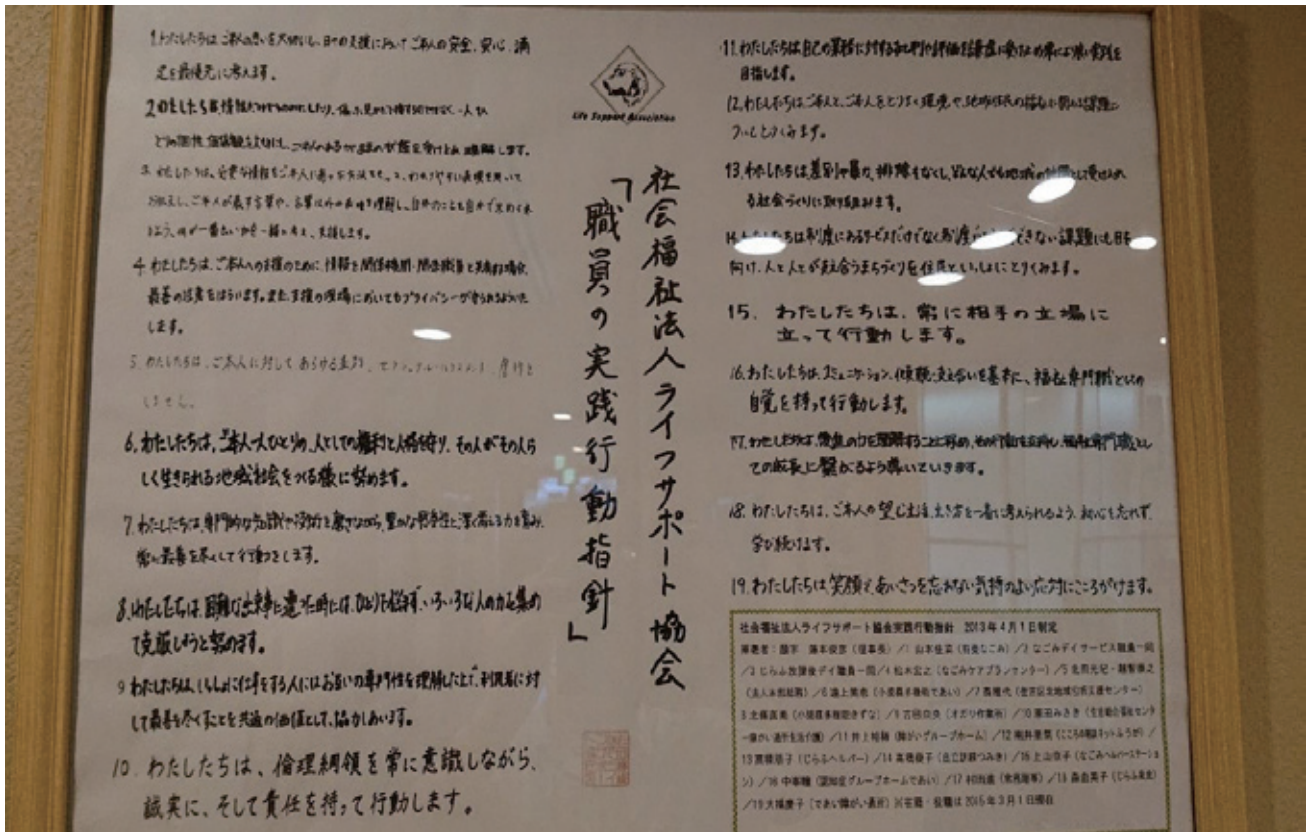 1. わたしたちは、ご本人の思いを大切にし、日々の支援においてご本人の安全、安心、満
足を最優先に考えます。
2. わたしたちは、情報だけできめつけたり、
どりの個性、価値観を大切にし、ご本人のあるがままの状態を受けとめ理解します。
3. わたしたちは、必要な情報をご本人に適った方法で、わかりやすい表現を用いて
お伝えし、ご本人が表す言葉や、言葉以外の表現を理解し、自分のことを自分で決めてい
けるよう、何が一番よいかを一緒に考え、支援します。
4. わたしたちは、ご本人への支援のために、情報を関係機関・関係職員と共有する場合、
最善の注意をはらいます。また、支援の現場においてもプライバシーが守られるようにいた
します。
5. わたしたちは、ご本人に対してあらゆる差別、セクシャル・ハラスメント、虐待を
しません。
6. わたしたちは、ご本人一人ひとりの、人としての権利と人格を守り、その人がその人ら
しく生きられる地域社会をつくる様に努めます。
7. わたしたちは、専門的な知識や技術を磨きながら、豊かな感受性と深く考える力を育み、
常に最善を尽くして行動をします。
8. わたしたちは、困難な出来事に遭った時には、ひとりで悩まず、いろいろな人の力を集め
て克服しようと努めます。
9 わたしたちは、いっしょに仕事をする人にはお互いの専門性を理解した上で、利用者に対
して最善を尽くすことを共通の価値として、協力しあいます。
10. わたしたちは、倫理綱領を常に意識しながら、
誠実に、そして責任を持って行動します。
Life Support Association
社会福祉法人ライフサポート協会
「職員の実践行動指針」
11. わたしたちは自己の業務に対する批判や評価を謙虚に受けとめ常により良い実践を
目指します。
12. わたしたちは、ご本人と、ご本人をとりまく環境や、地域住民の福祉に関わる課題に
ついてとりくみます。
13. わたしたちは、差別や暴力、排除をなくし、どんな人でも地域の仲間として受け入れ
る社会づくりに取り組みます。
14. わたしたちは制度にあるサービスだけでなく制度できない課題にも目を
向け、人と人とが支え合うまちづくりを住民といっしょにとりくみます。
15. わたしたちは、常に相手の立場に
立って行動します。
16. わたしたちは、コミュニケーション、傾聴、支え合いを基本に、福祉専門職としての
自覚を持って行動します。
17. わたしたちは、職員の力を理解することに努め、その行動を支持し、福祉専門職とし
ての成長に繋がるよう導いていきます。
18. わたしたちは、ご本人の望む生活、生き方を一番に考えられるよう、初心を忘れず、
学び続けます。
19. わたしたちは、笑顔で、あいさつを忘れない気持のよい応対にこころがけます。
社会福祉法人ライフサポート協会実践行動指針 2013年4月1日制定
揮毫者：題字 藤本俊彦（理事長）／1 山本佳菜（和美なごみ）／2 なごみデイサービス職員一同
／3 じらふ放課後デイ職員一同／4 松木宏之（なごみケアプランセンター）／5
（法人本部総務）／6 池上美也（小規模多機能であい）／7（住吉区北地域包括支援センター）
8 北條直美（小規模多機能きずな）／9 吉田（オガリ作業所）／10 藤田みさき（住吉総合福祉センタ
ー障がい者生活介護）／11 井上裕輔（障がいグループホーム）／12（こころの相談ネットふうが）／
13（じらふヘルパー）／14 高橋（自立訓練つみき）／15 上山（なごみヘルパーステーショ
ン）／16 中（認知症グループホームであい）／17 村田進（常務理事）／18 森由美子（じらふ）
／19 大橋（であい障がい者所）※在籍・役職は2015年3月1日現在